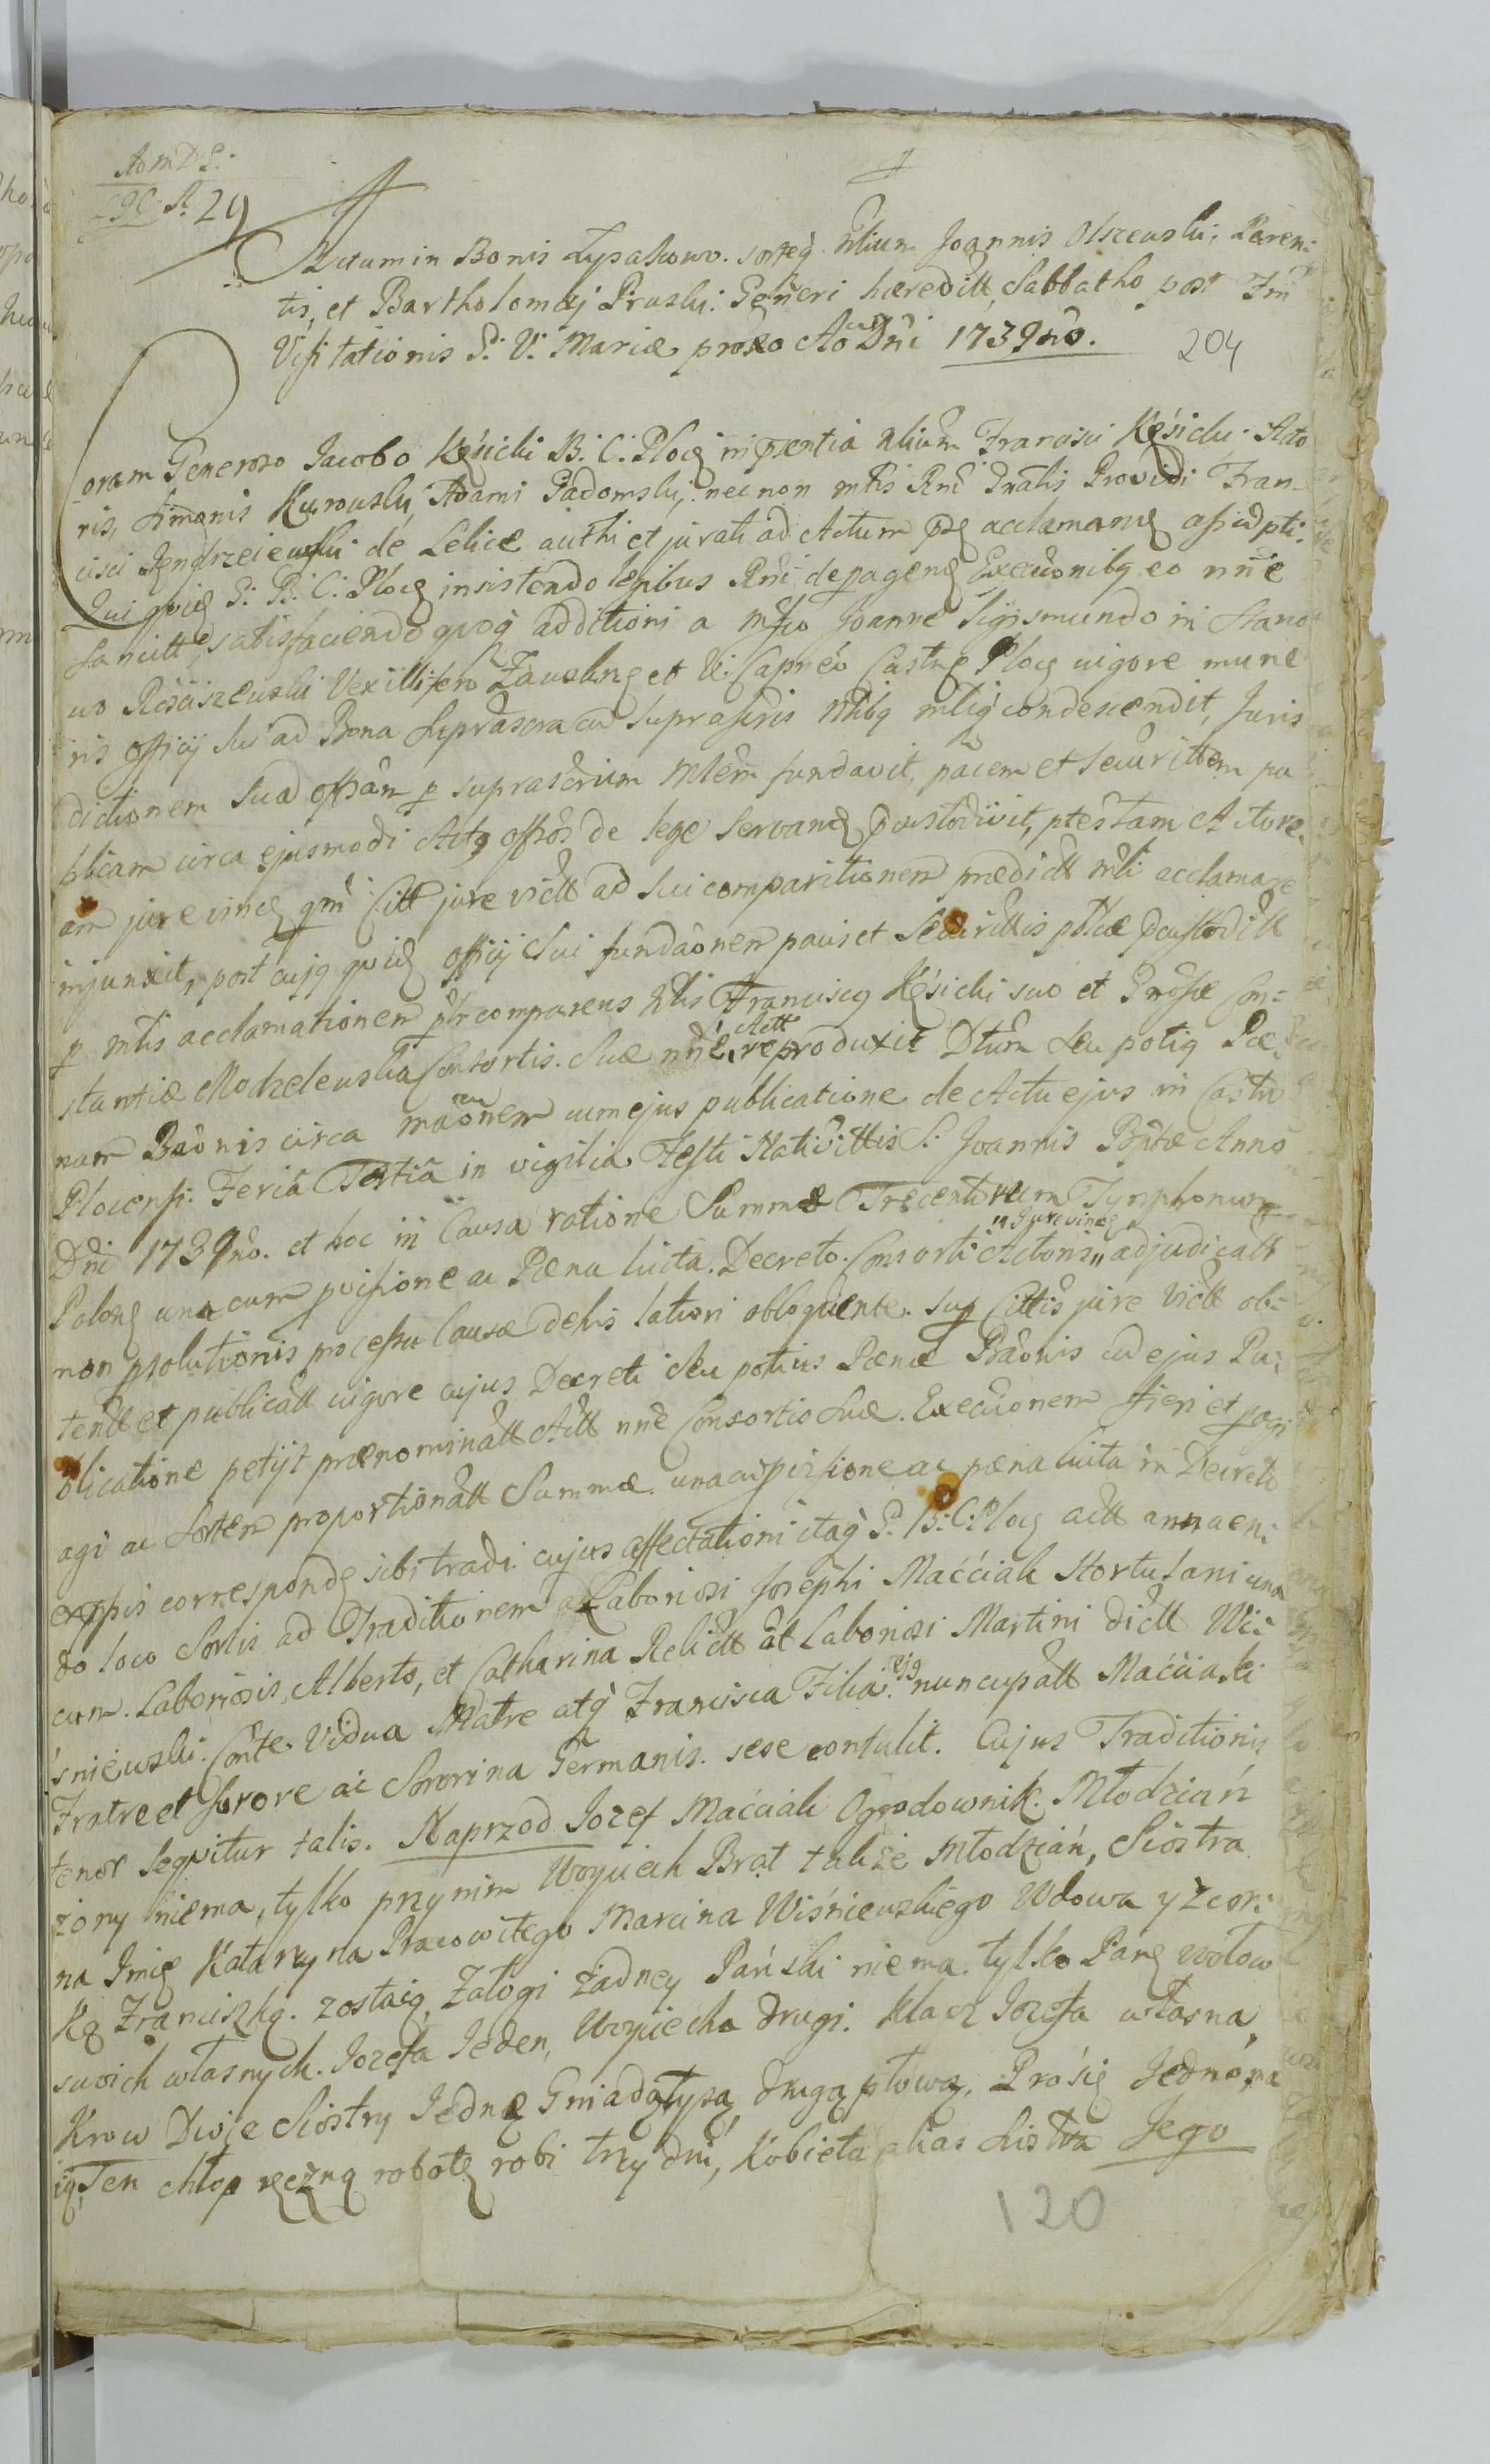 AomDG:
29
Actum in Bonis Łypakowo. sorteq Nlium Joannis Olszewski, Paren:
tis, et Bartholomæj Pruski: Generi hæreditt Sabbatho post Fm
Visitationis B: V: Mariæ proxo Ao Dni 1739no.
204
Coram Generoso Jacobo Kęsicki B: C: Ploc in pntia Nlium Francisci Kęsicki Acto
ris, Simonis Kurowski, Adami Gadomski, necnon mtis Rni Gnalis Providi Fran-
cisci Jendrzeiewski de Lelice authi et jurati ad Actum acclaman
Qui quid G: B: C: Ploc insistendo legibus Rni de pagen Execuonibq eo nne
sancitt, satisfaciendo quoq additioni a Mfco Joanne Sigismundo in Staro
wo Rościszewski Vexillifero Zawskrn et V: Capneo Castr Ploc vigore mune
ris officij sui ad Bona suprascra cu suprascris Nlibq mliq condescendit, Juris
dictionem suã offsam p suprascrium Mlem fundavit, pacem et securittem pu
blicam circa ejusmodi Actq offsos de lege servan pcustodivit, ptestam Actore
am jure vinc Citt jure victt ad sui comparitionem prædictt mli acclamare
injunxit, post cujq quid officij sui fundaonem pacis et securittis pblcæ pcustoditt
p mlis acclamationem pltr comparens Nlis Franciscq Kęsicki suo et Gnosæ Con:
stantiæ Modzelewska Consortis suæ nne Actt reproduxit Dtum seu potiq Pœ
nam Baonis circa maonem cum ejus publicatione de Actu ejus in Castro
Plocensi Feria Tertia in vigilia Festi Nativittis S: Joannis Bptæ Anno
Dni 1739no. et hoc in Causa ratione Summæ Trecentorum Tymphonum
Polon una cum pvisione ac Pœna luita Decreto Consorti Actoris „Jurevinc„ adjudicatt
non psolutionis processu Causæ dehis latiori obloquente sup Cittis jure victt ob:
tentt et publicatt vigore cujus Decreti seu potius Pœnæ Baonis cu ejus Pu:
blicatione petijt prænominatt Actt nne Consortis suæ Execuonem fieri et
agi ac sortem proportionatt Summæ una cu pvisione ac pœna luita in Decreto
correspond sibi tradi cujus affectationi itaq G: B: C: Ploc actt annuen:
do loco sortis ad Traditionem Laboriosi Josephi Maćciak Hortulani una
cum Laboriosis, Alberto, et Catharina Relictt Laboriosi Martini dictt Wi:
śniewski Conte Vidua Matre atq Francisca Filia ejq nuncupatt Maćciaski
Fratre et sorore ac Sororina Germanis sese contulit. Cujus Traditionis
tenor sequitur talis. Naprzod Jozef Maćciak Ogrodownik Młodzian
żony niema, tylko przynim Woyciech Brat takiże Młodzian, Siostra
na Imię Katarzyna Pracowitego Marcina Wiśniewskiego Wdowa y z cor:
ką Franciszką. zostaią, Załogi żadney Pański niema tylko Parę wołow
swoich własnych. Jozefa Jeden, Woyciecha drugi. Klacz Jozefa własna,
Krow Dwie Siostry Jednę Gniadąłysą drugą płową, Prosię Jedno ma
ią, Ten chłop ręczną robotę robi trzy dni, Kobieta alias Siostra Jego
120